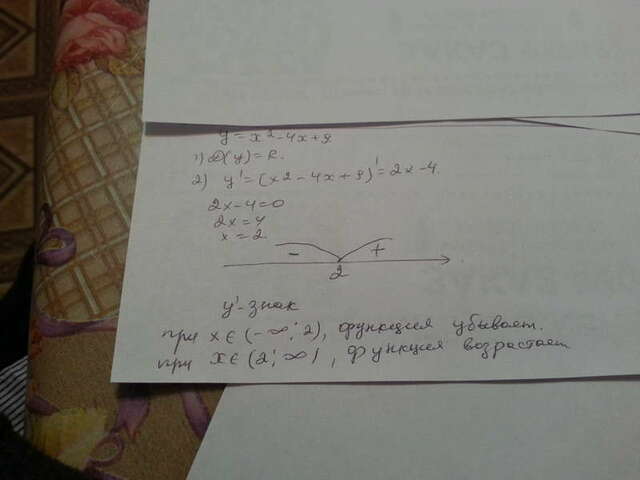 y = x²-4x+9
1) D(y) = R.
2) y' = (x2-4x+9)' = 2x-4.
2x-4=0
2x=4
x=2.
- +
2
y'-знак
при x∈(-∞; 2), функция убывает.
при x∈(2; ∞), функция возрастает